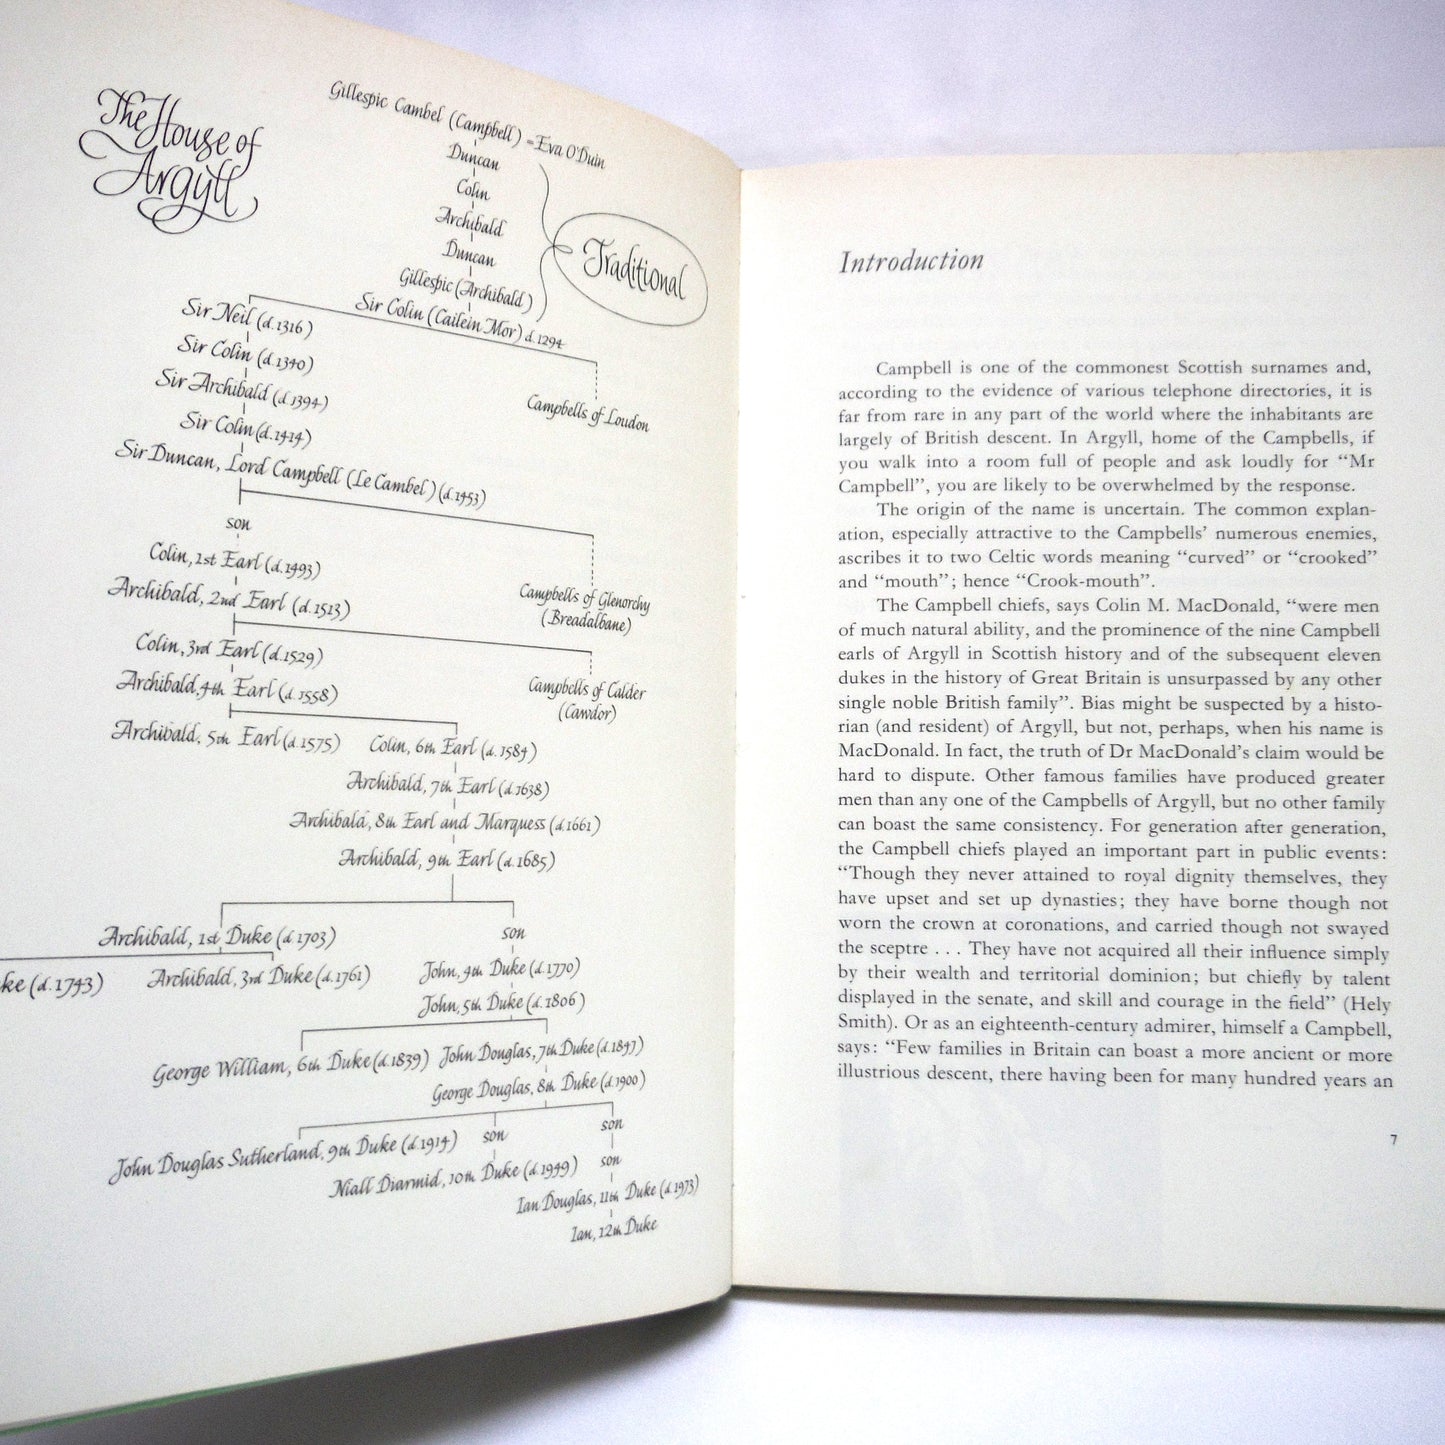 The House of
Argyll
Gillespic Cambel (Campbell) = Eva O'Duin
Duncan
Colin
Archibald
Duncan
Gillespic (Archibald)
Traditional
Sir Colin (Cailein Mor) d.1294
Sir Neil (d.1316)
Sir Colin (d.1340)
Sir Archibald (d.1394)
Sir Colin (d.1414)
Campbells of Loudon
Sir Duncan, Lord Campbell (Le Cambel) (d.1453)
son
Colin, 1st Earl (d.1493)
Archibald, 2nd Earl (d.1513)
Campbells of Glenorchy
(Breadalbane)
Colin, 3rd Earl (d.1529)
Archibald, 4th Earl (d.1558)
Campbells of Calder
(Cawdor)
Archibald, 5th Earl (d.1575) Colin, 6th Earl (d.1584)
Archibald, 7th Earl (d.1638)
Archibald, 8th Earl and Marquess (d.1661)
Archibald, 9th Earl (d.1685)
Archibald, 1st Duke (d.1703) son
ke (d.1743) Archibald, 3rd Duke (d.1761) John, 4th Duke (d.1770)
John, 5th Duke (d.1806)
George William, 6th Duke (d.1839) John Douglas, 7th Duke (d.1847)
George Douglas, 8th Duke (d.1900)
John Douglas Sutherland, 9th Duke (d.1914) son son
Niall Diarmid, 10th Duke (d.1949) son
Ian Douglas, 11th Duke (d.1973)
Ian, 12th Duke
Introduction
Campbell is one of the commonest Scottish surnames and,
according to the evidence of various telephone directories, it is
far from rare in any part of the world where the inhabitants are
largely of British descent. In Argyll, home of the Campbells, if
you walk into a room full of people and ask loudly for “Mr
Campbell”, you are likely to be overwhelmed by the response.
The origin of the name is uncertain. The common explan-
ation, especially attractive to the Campbells’ numerous enemies,
ascribes it to two Celtic words meaning “curved” or “crooked”
and “mouth”; hence “Crook-mouth”.
The Campbell chiefs, says Colin M. MacDonald, “were men
of much natural ability, and the prominence of the nine Campbell
earls of Argyll in Scottish history and of the subsequent eleven
dukes in the history of Great Britain is unsurpassed by any other
single noble British family”. Bias might be suspected by a histo-
rian (and resident) of Argyll, but not, perhaps, when his name is
MacDonald. In fact, the truth of Dr MacDonald’s claim would be
hard to dispute. Other famous families have produced greater
men than any one of the Campbells of Argyll, but no other family
can boast the same consistency. For generation after generation,
the Campbell chiefs played an important part in public events:
“Though they never attained to royal dignity themselves, they
have upset and set up dynasties; they have borne though not
worn the crown at coronations, and carried though not swayed
the sceptre . . . They have not acquired all their influence simply
by their wealth and territorial dominion; but chiefly by talent
displayed in the senate, and skill and courage in the field” (Hely
Smith). Or as an eighteenth-century admirer, himself a Campbell,
says: “Few families in Britain can boast a more ancient or more
illustrious descent, there having been for many hundred years an
7